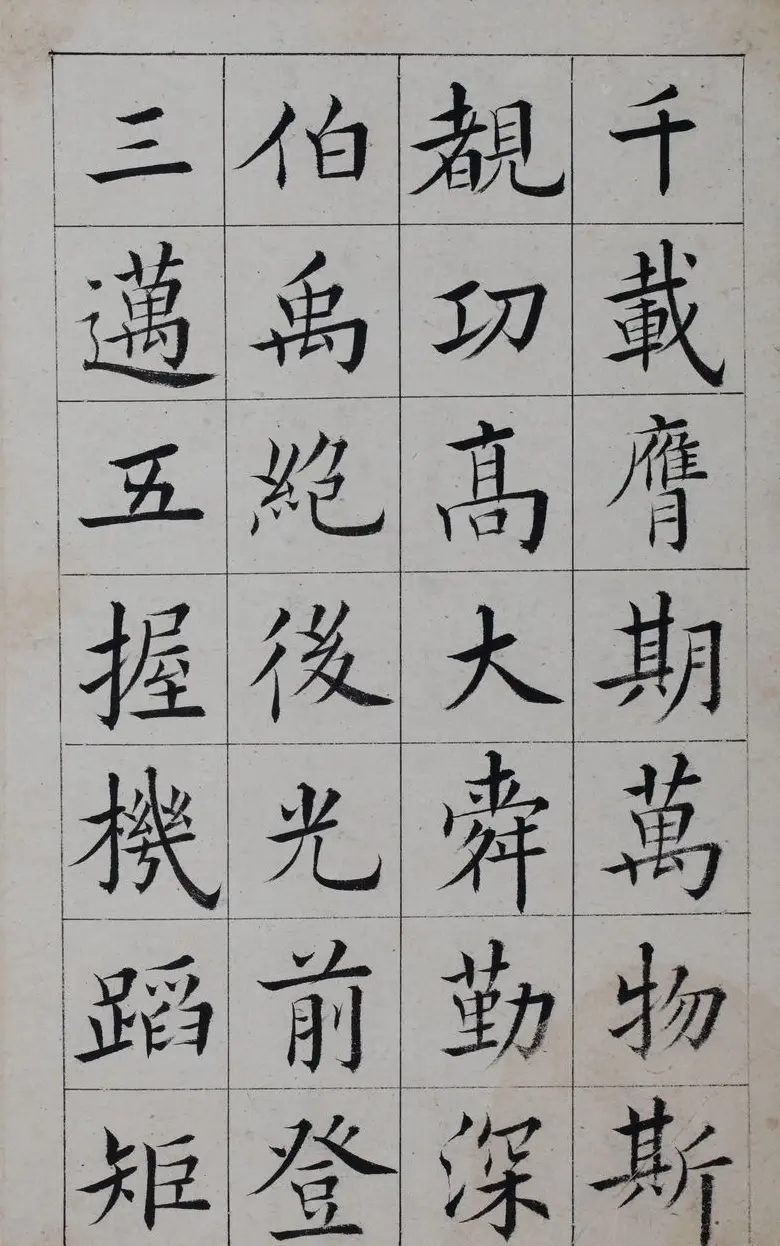 千載膺期萬物斯
覩功高大舜勤深
伯禹絶後光前登
三邁五握機蹈矩